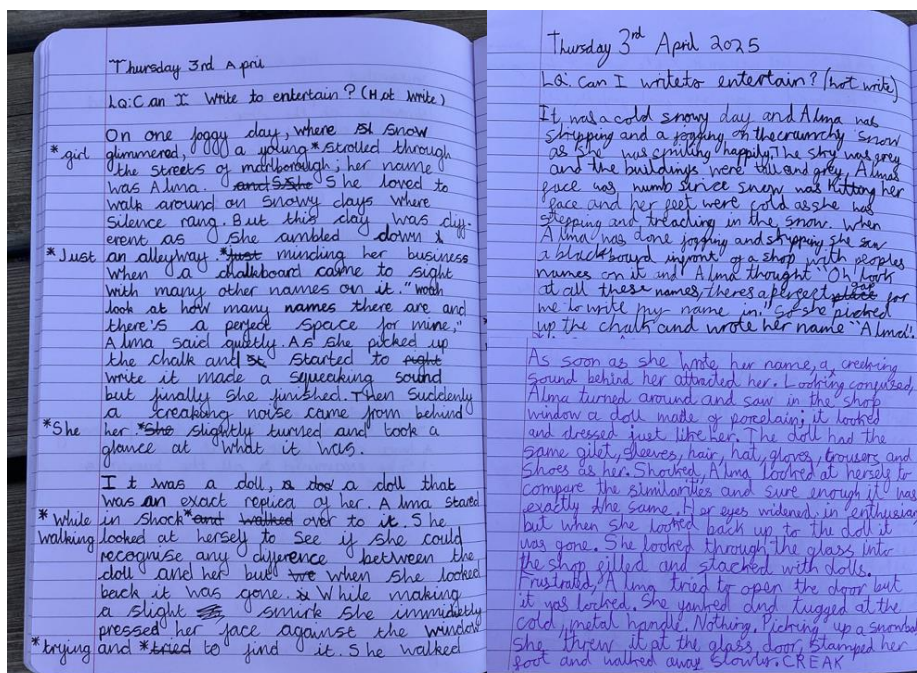 Thursday 3rd April
LQ: Can I write to entertain? (Hot write)
On one foggy day, where snow
* girl glimmered, a young * strolled through
the streets of marlborough; her name
was Alma. and She She loved to
walk around on snowy days where
silence rang. But this day was diff-
erent as she ambled down
* Just an alleyway. * just minding her business
when a chalkboard came to sight
with many other names on it. "woah
look at how many names there are and
there's a perfect space for mine,"
Alma said quietly. As she picked up
the chalk and st started to right
write it made a squeaking sound
but finally she finished. Then suddenly
a creaking noise came from behind
* She her. * She slightly turned and took a
glance at what it was.
It was a doll, a doll that
was an exact replica of her. Alma stared
* while in shock * and walked over to it. She
walking looked at herself to see if she could
recognise any difference between the
doll and her but we when she looked
back it was gone. While making
a slight smirk she immidietly
pressed her face against the window
* trying and * tried to find it. She walked
Thursday 3rd April 2025
LQ: Can I write to entertain? (hot write)
It was a cold snowy day and Alma was
skipping and a jogging on the craunchy snow
as she was smiling happily. The sky was grey
and the buildings were tall and grey, Almas
face was numb since snow was hitting her
face and her feet were cold as she was
stepping and treading in the snow. When
Alma was done jogging and skipping she saw
a black bourd infront of a shop with peoples
names on it and Alma thought "Oh! look
at all these names, theres a perfect place gap for
me to write my name in." So she picked
up the chalk and wrote her name "Alma".
As soon as she wrote her name, a creaking
sound behind her attracted her. Looking confused,
Alma turned around and saw in the shop
window a doll made of porcelain; it looked
and dressed just like her. The doll had the
same gilet, sleeves, hair, hat, gloves, trousers and
shoes as her. Shocked, Alma looked at herself to
compare the similarities and sure enough it was
exactly the same. Her eyes widened in enthusiasm
but when she looked back up to the doll it
was gone. She looked through the glass into
the shop filled and stacked with dolls.
Frustrated, Alma tried to open the door but
it was locked. She yanked and tugged at the
cold, metal handle. Nothing. Picking up a snowball
she threw it at the glass door, stamped her
foot and walked away slowly. CREAK